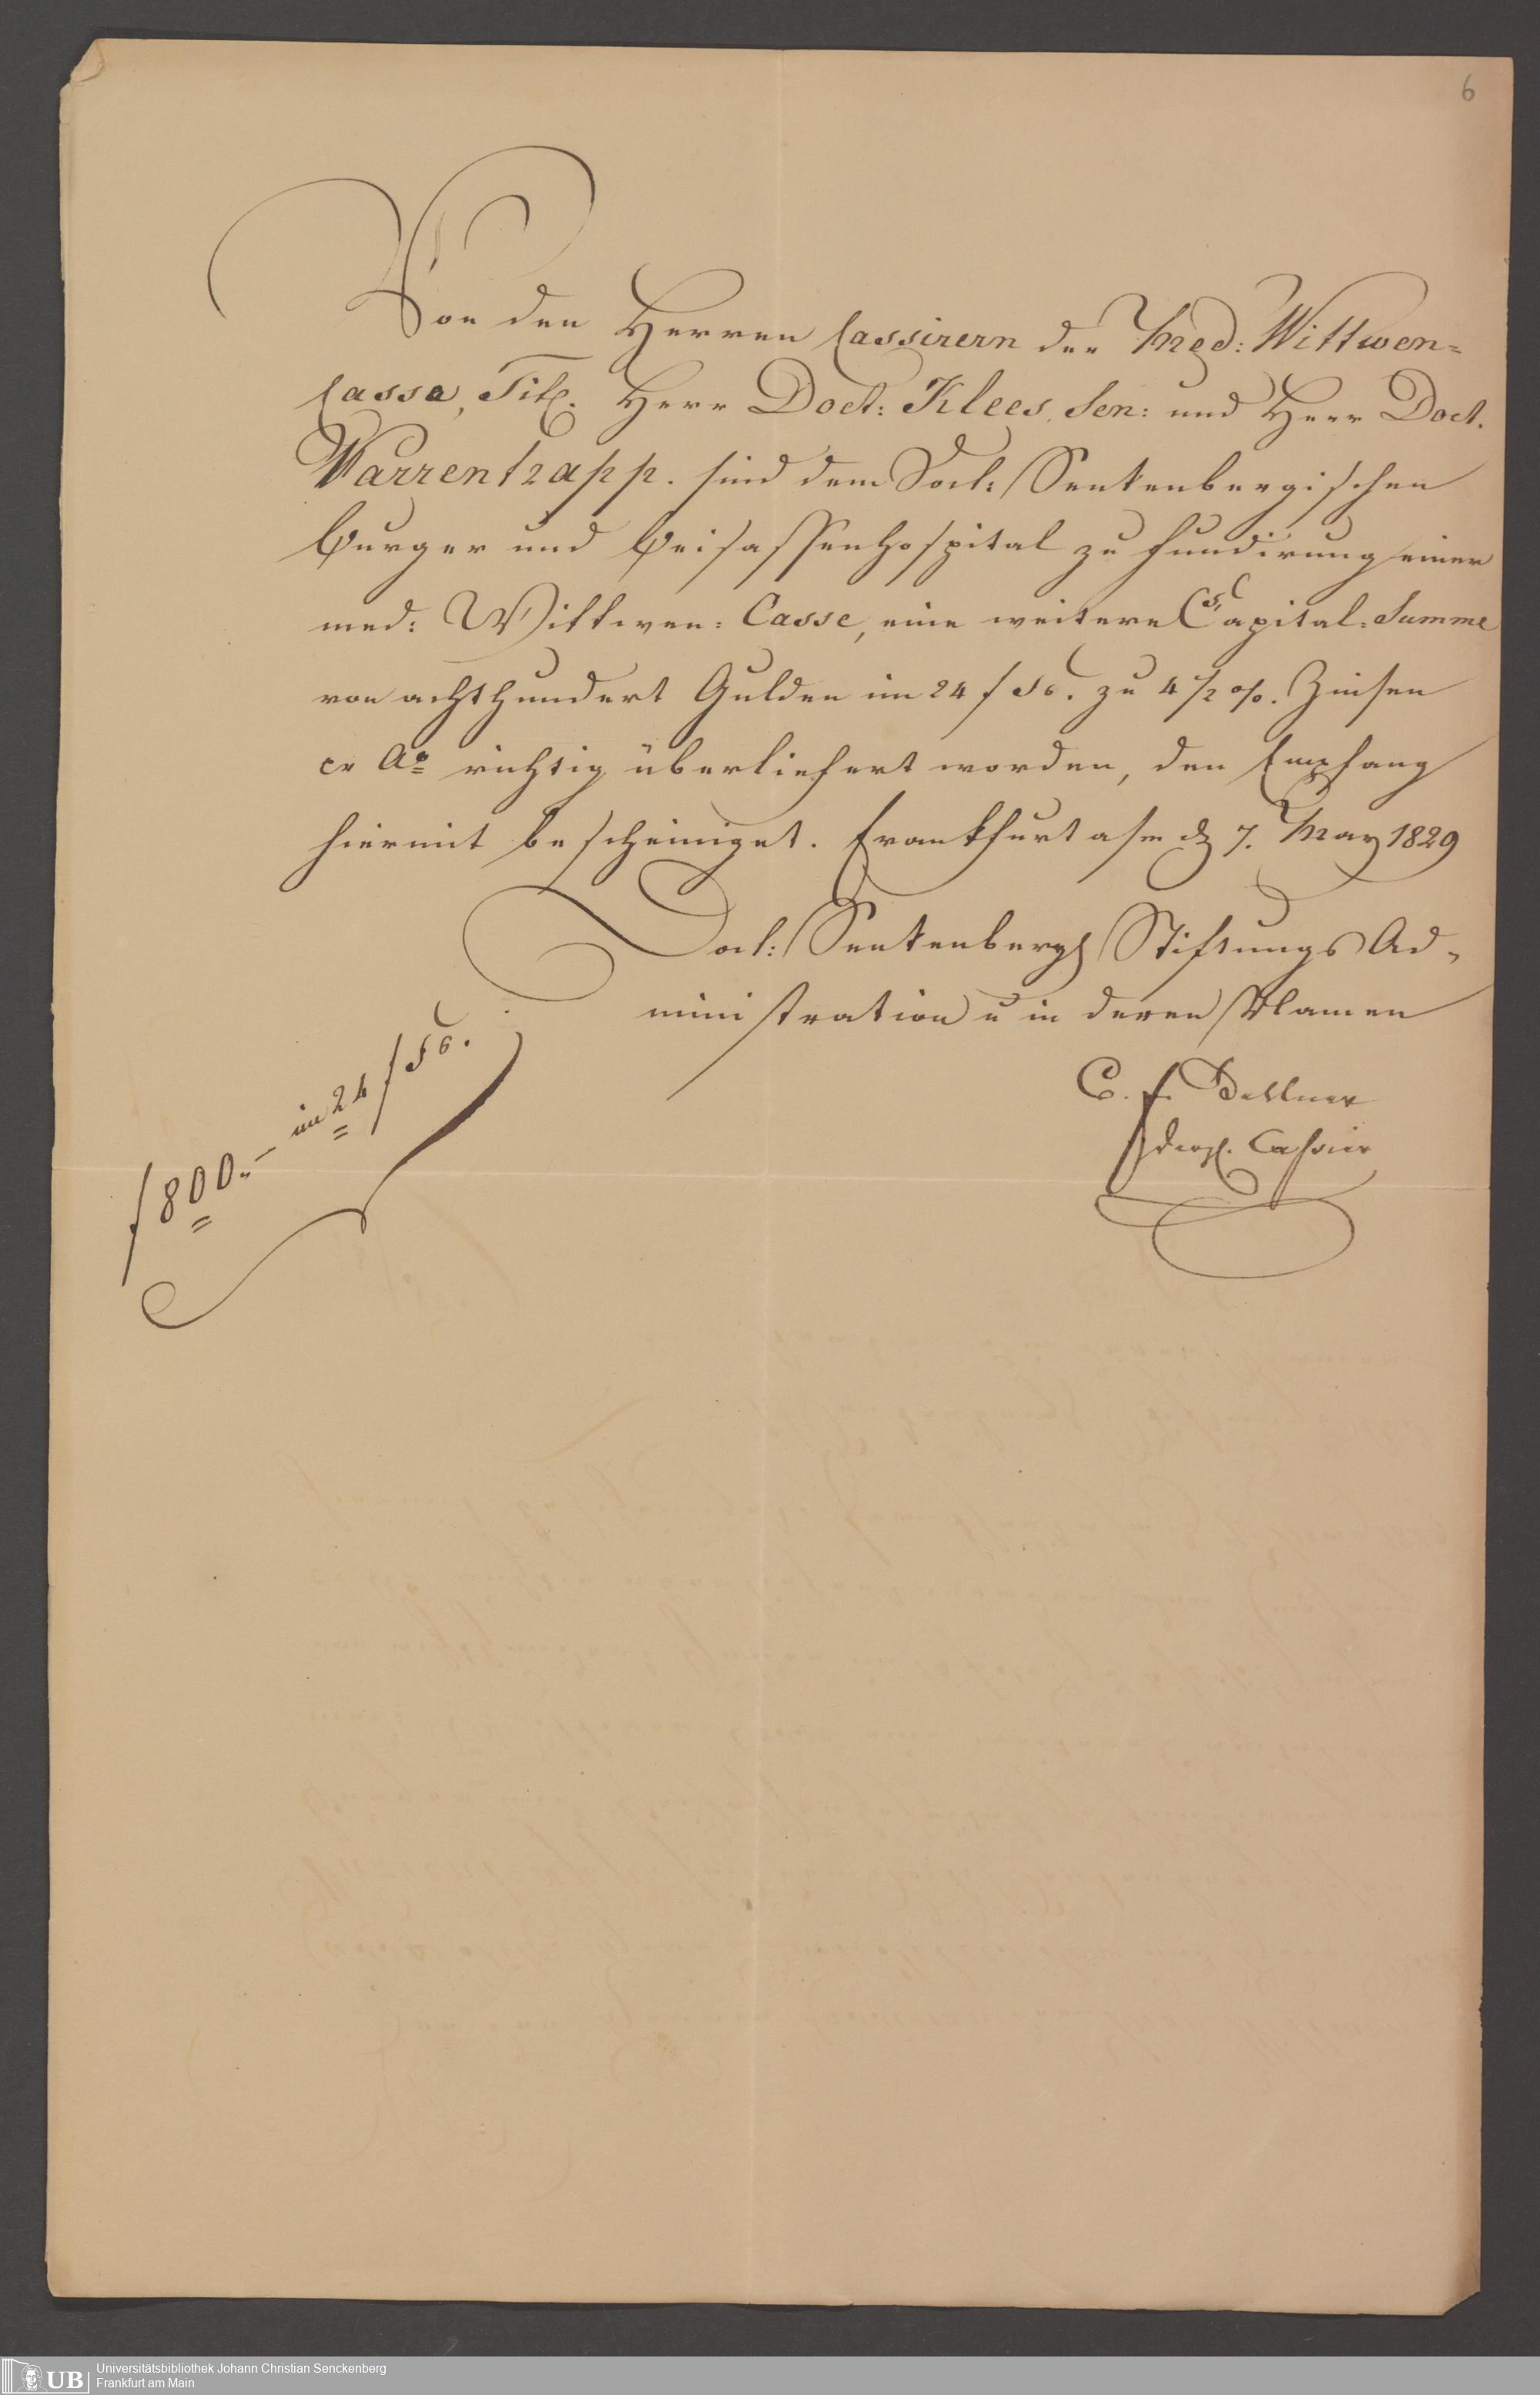 6
Von den Herren Cassirern der Med: Wittwen=
Casse, Tit. Herr Doct: Klees, Sen: und Herr Doct.
Warrentrapp. sind dem Doct: Senkenbergischen
Burger und Beisassenhospital zu Fundirung einer
med: Wittwen: Casse, eine weitere Capital: Summe
von achthundert Gulden im 24 f. zu 4 1/2 %. Zinsen
Ao richtig überliefert worden, den Empfang
hiermit bescheiniget. Frankfurt a/m d 7. May 1829
Doct: Senkenberg Stiftungs Ad=
ministration u in deren Namen
C. F. Dellner
Cassier
f 800.- im 24 f
UB Universitätsbibliothek Johann Christian Senckenberg
Frankfurt am Main